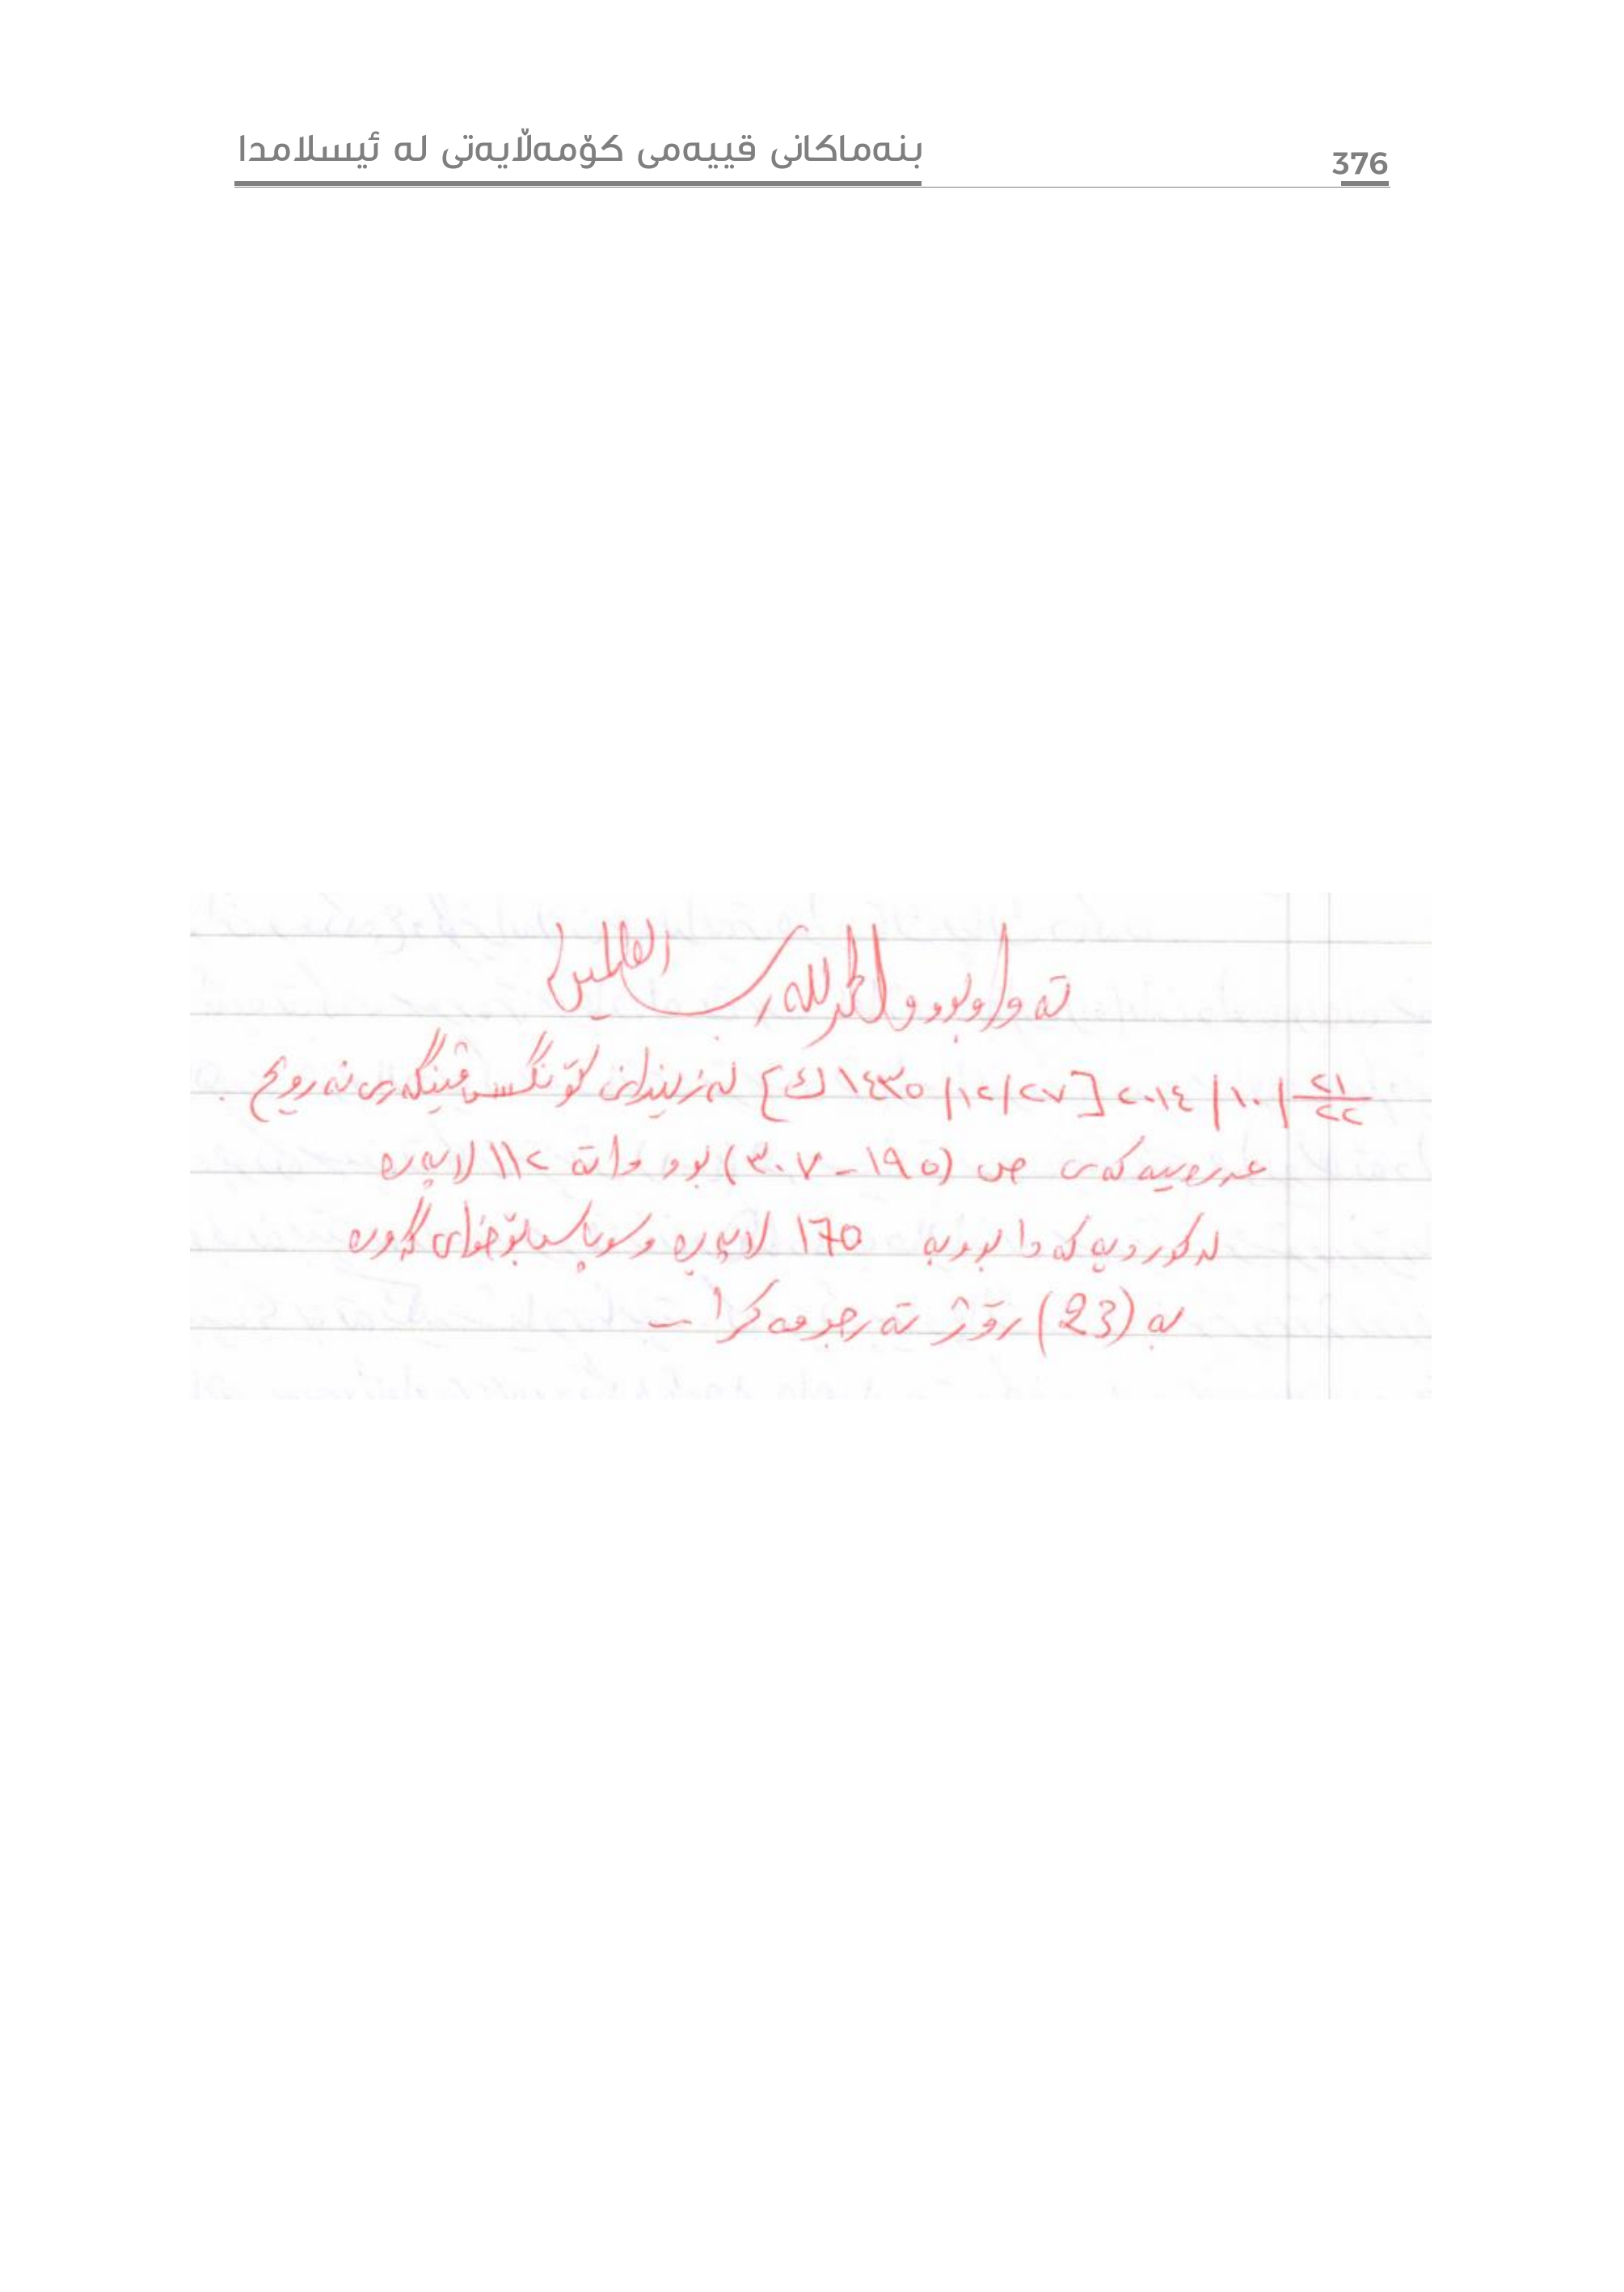 بنەماکانی قییەمی کۆمەڵایەتی لە ئیسلامدا
376
تەواوبوو والحمد لله رب العالمین
٢١/٢٢ /١٠/ ٢٠١٤ [٢٧/١٢/ ١٤٣٥ ك] لەزیندانی كۆنگسڤینگەری نەرویج .
عەرەبیەكەی ص (١٩٥ - ٣٠٧) بوو واتە ١١٢ لاپەرە
لەكوردیەكەدا بووبە ١٦٥ لاپەرە وسوپاس بۆخوای گەورە
بە (23) رۆژ تەرجومەكرا –